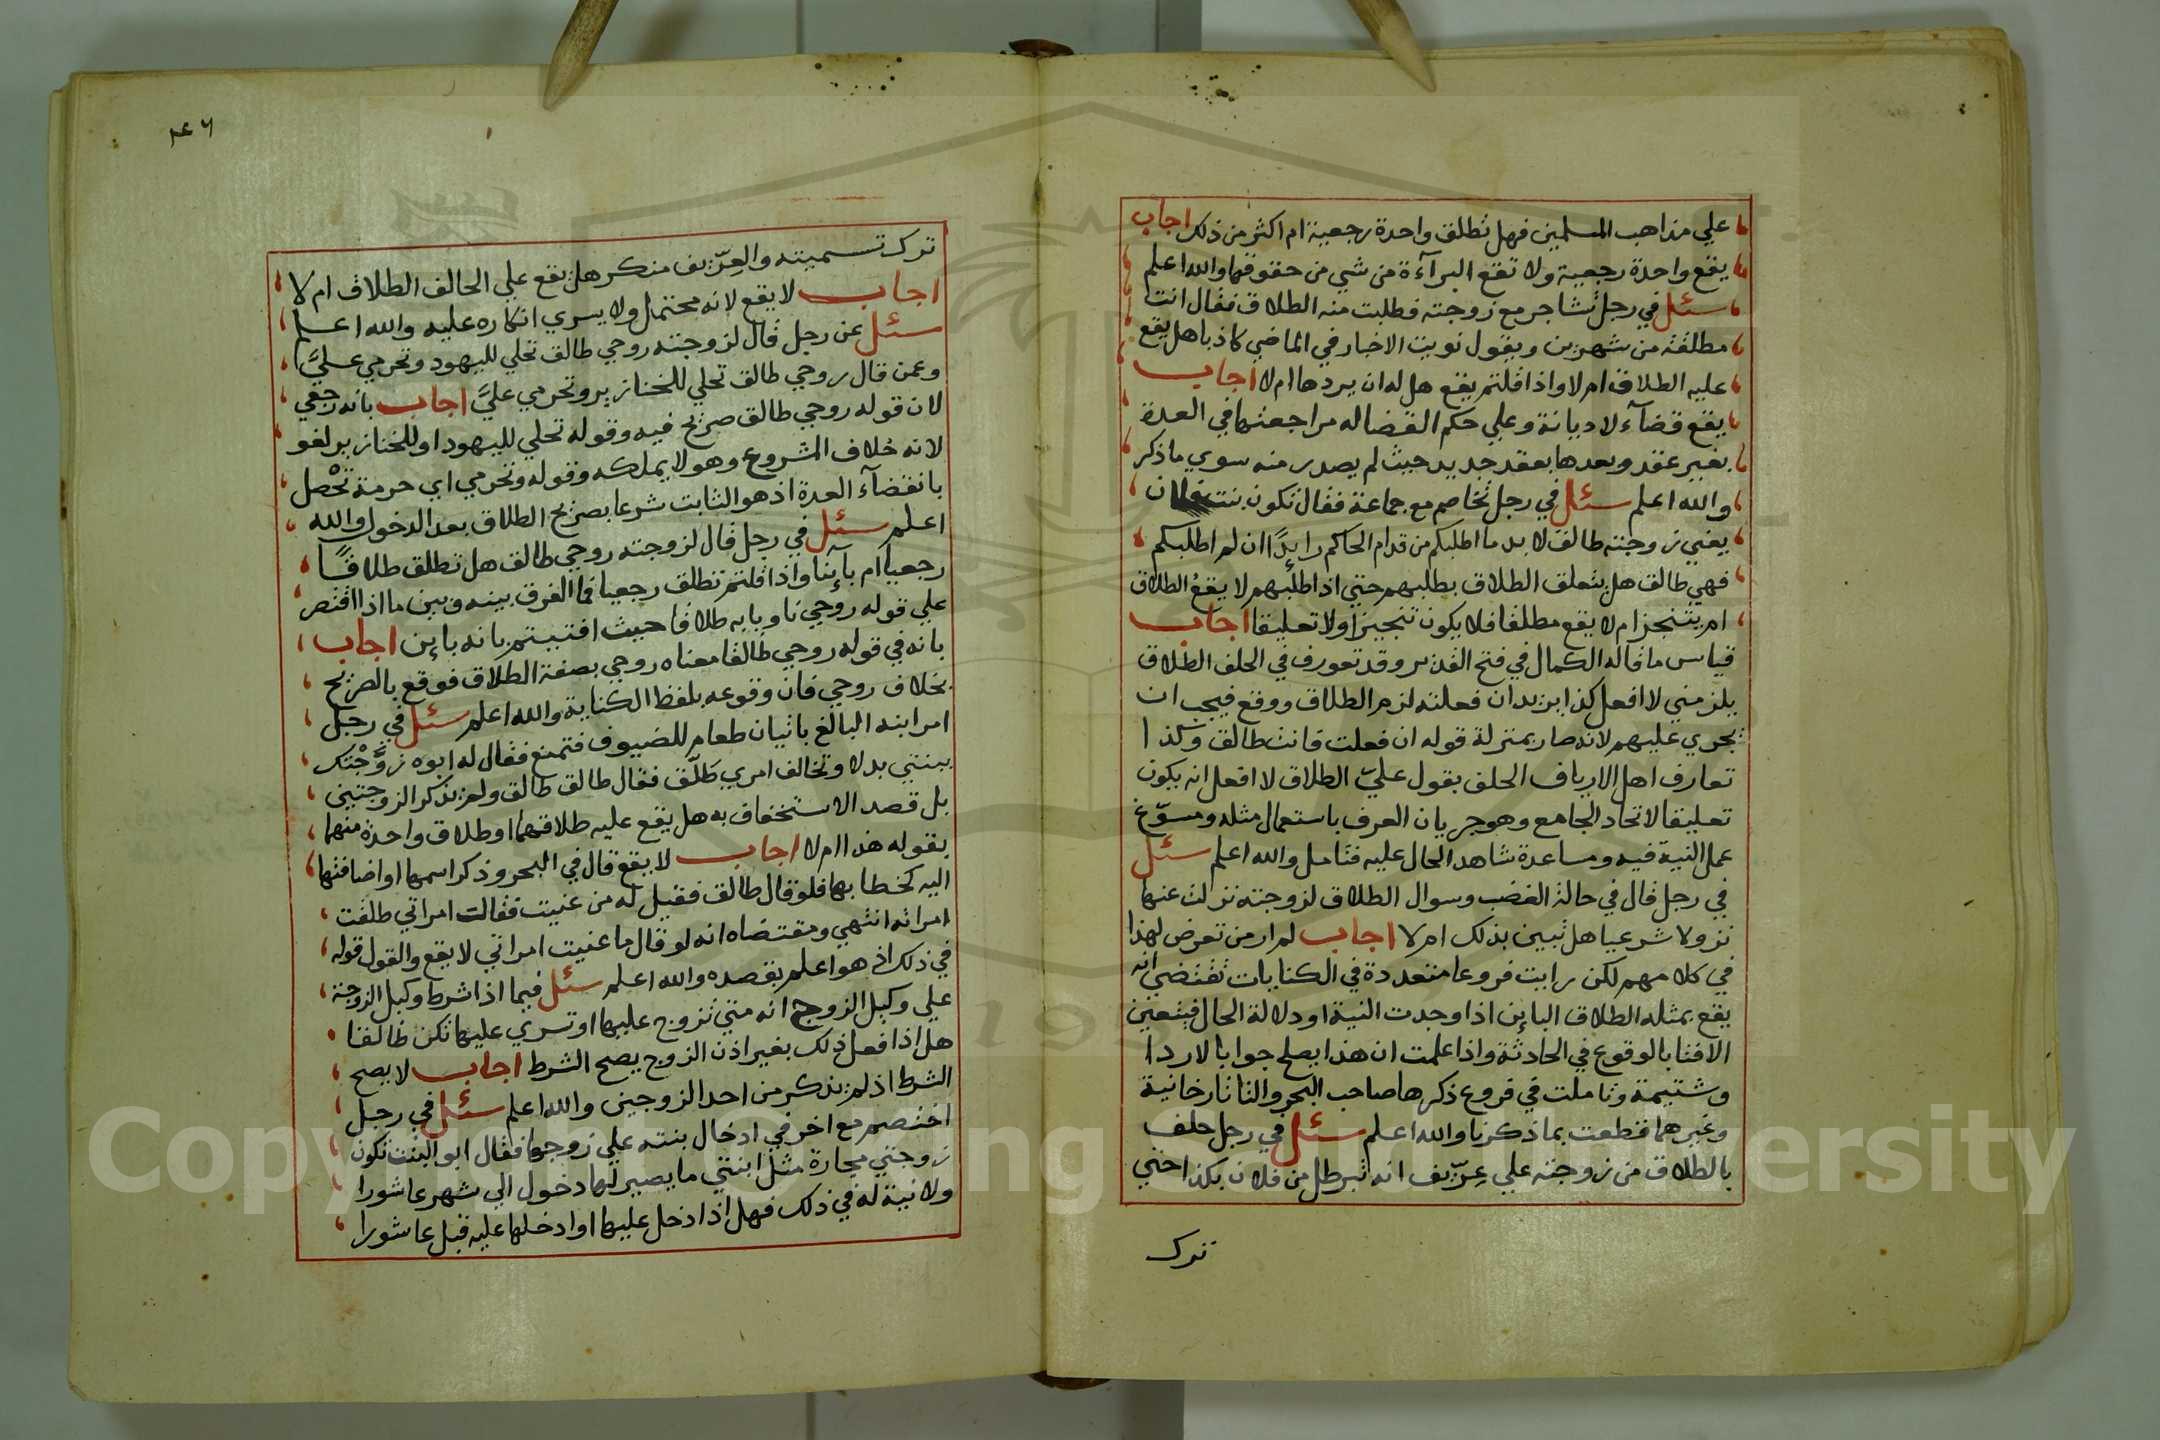 علي مذاهب المسلمين فهل تطلق واحدة رجعية ام اكثر من ذلك اجاب
يقع واحدة رجعية ولا تقع البرآءة من شي من حقوقها والله اعلم
سئل في رجل تشاجر مع زوجته فطلبت منه الطلاق فقال انت
مطلقة من شهرين ويقول نويت الاخبار في الماضي كاذبا هل يقع
عليه الطلاق ام لا واذا قلتم يقع هل له ان يردها ام لا اجاب
يقع قضآء لا ديانة وعلي حكم القضا له مراجعتها في العدة
بغير عقد وبعدها بعقد جديد حيث لم يصدر منه سوي ما ذكر
والله اعلم سئل في رجل تخاصم مع جماعة فقال تكون بنت فلان
يعني زوجته طالق لا بد ما اطلبكم من قدام الحاكم ان لم اطلبكم
فهي طالق هل يتعلق الطلاق بطلبهم حتي اذا طلبهم لا يقع الطلاق
ام يتنجز ام لا يقع مطلقا فلا يكون تنجيزا ولا تعليقا اجاب
قياس ما قاله الكمال في فتح القدير وقد تعورف في الحلف الطلاق
يلزمني لا افعل كذا يريد ان فعلته لزم الطلاق ووقع فيجب ان
يجري عليهم لانه صار بمنزلة قوله ان فعلت فانت طالق وكذا
تعارف اهل الارياف الحلف بقول عليّ الطلاق لا افعل انه يكون
تعليقا لاتحاد الجامع وهو جريان العرف باستعمال مثله ومسوّغ
عمل النية فيه ومساعدة شاهد الحال عليه فتامل والله اعلم سئل
في رجل قال في حالة الغضب وسوال الطلاق لزوجته نزلت عنها
نزولا شرعيا هل تبين بذلك ام لا اجاب لم ار من تعرض لهذا
في كلامهم لكن رايت فروعا متعددة في الكنايات تقتضي انه
يقع بمثله الطلاق الباين اذا وجدت النية او دلالة الحال فيتعين
الافتا بالوقوع في الحادثة واذا علمت ان هذا يصلح جوابا لا ردا
وشتيمة وتاملت في فروع ذكرها صاحب البحر والتاتارخانية
وغيرهما قطعت بما ذكرنا والله اعلم سئل في رجل حلف
بالطلاق من زوجته علي عِرّيف انه تبرطل من فلان بكذا حتي
ترك
٢٤٦
ترك تسميته والعِرّيف منكر هل يقع علي الحالف الطلاق ام لا
اجاب لا يقع لانه محتمل ولا يسري انكاره عليه والله اعلم
سئل عن رجل قال لزوجته روحي طالق تحلي لليهود وتحرمي عليَّ
وعمن قال روحي طالق تحلي للخنازير وتحرمي عليَّ اجاب بانه رجعي
لان قوله روحي طالق صريح فيه وقوله تحلي لليهود او للخنازير لغو
لانه خلاف المشروع وهو لا يملكه وقوله وتحرمي اي حرمة تحصل
بانقضآء العدة اذ هو الثابت شرعا بصريح الطلاق بعد الدخول والله
اعلم سئل في رجل قال لزوجته روحي طالق هل تطلق طلاقًا
رجعيا ام بآينا واذا قلتم تطلق رجعيا فما الفرق بينه وبين ما اذا اقتصر
علي قوله روحي ناويا به طلاقا حيث افتيتم بانه باين اجاب
بانه في قوله روحي طالقا معناه روحي بصفة الطلاق فوقع بالصريح
بخلاف روحي فان وقوعه بلفظ الكناية والله اعلم سئل في رجل
امر ابنه البالغ باتيان طعام للضيوف فتمنع فقال له ابوه زوَّجْتك
ببنتي بدلا وتخالف امري طَلّق فقال طالق طالق ولم يذكر الزوجتين
بل قصد الاستخفاف به هل يقع عليه طلاقهما او طلاق واحدة منهما
بقوله هذا ام لا اجاب لا يقع قال في البحر وذكر اسمها او اضافتها
اليه كخطابها فلو قال طالق فقيل له من عنيت فقالت امراتي طلقت
امراته انتهي ومقتضاه انه لو قال ما عنيت امراتي لا يقع والقول قوله
في ذلك اذ هو اعلم بقصده والله اعلم سئل فيما اذا شرط وكيل الزوجة
علي وكيل الزوج انه متي تزوج عليها او تسري عليها تكن طالقا
هل اذا فعل ذلك بغير اذن الزوج يصح الشرط اجاب لا يصح
الشرط اذ لم يذكر من احد الزوجين والله اعلم سئل في رجل
اختصم مع اخر في ادخال بنته علي زوجها فقال ابو البنت تكون
زوجتي محارة مثل ابنتي ما يصير لها دخول الي شهر عاشورا
ولا نية له في ذلك فهل اذا دخل عليها او ادخلها عليه قبل عاشورا